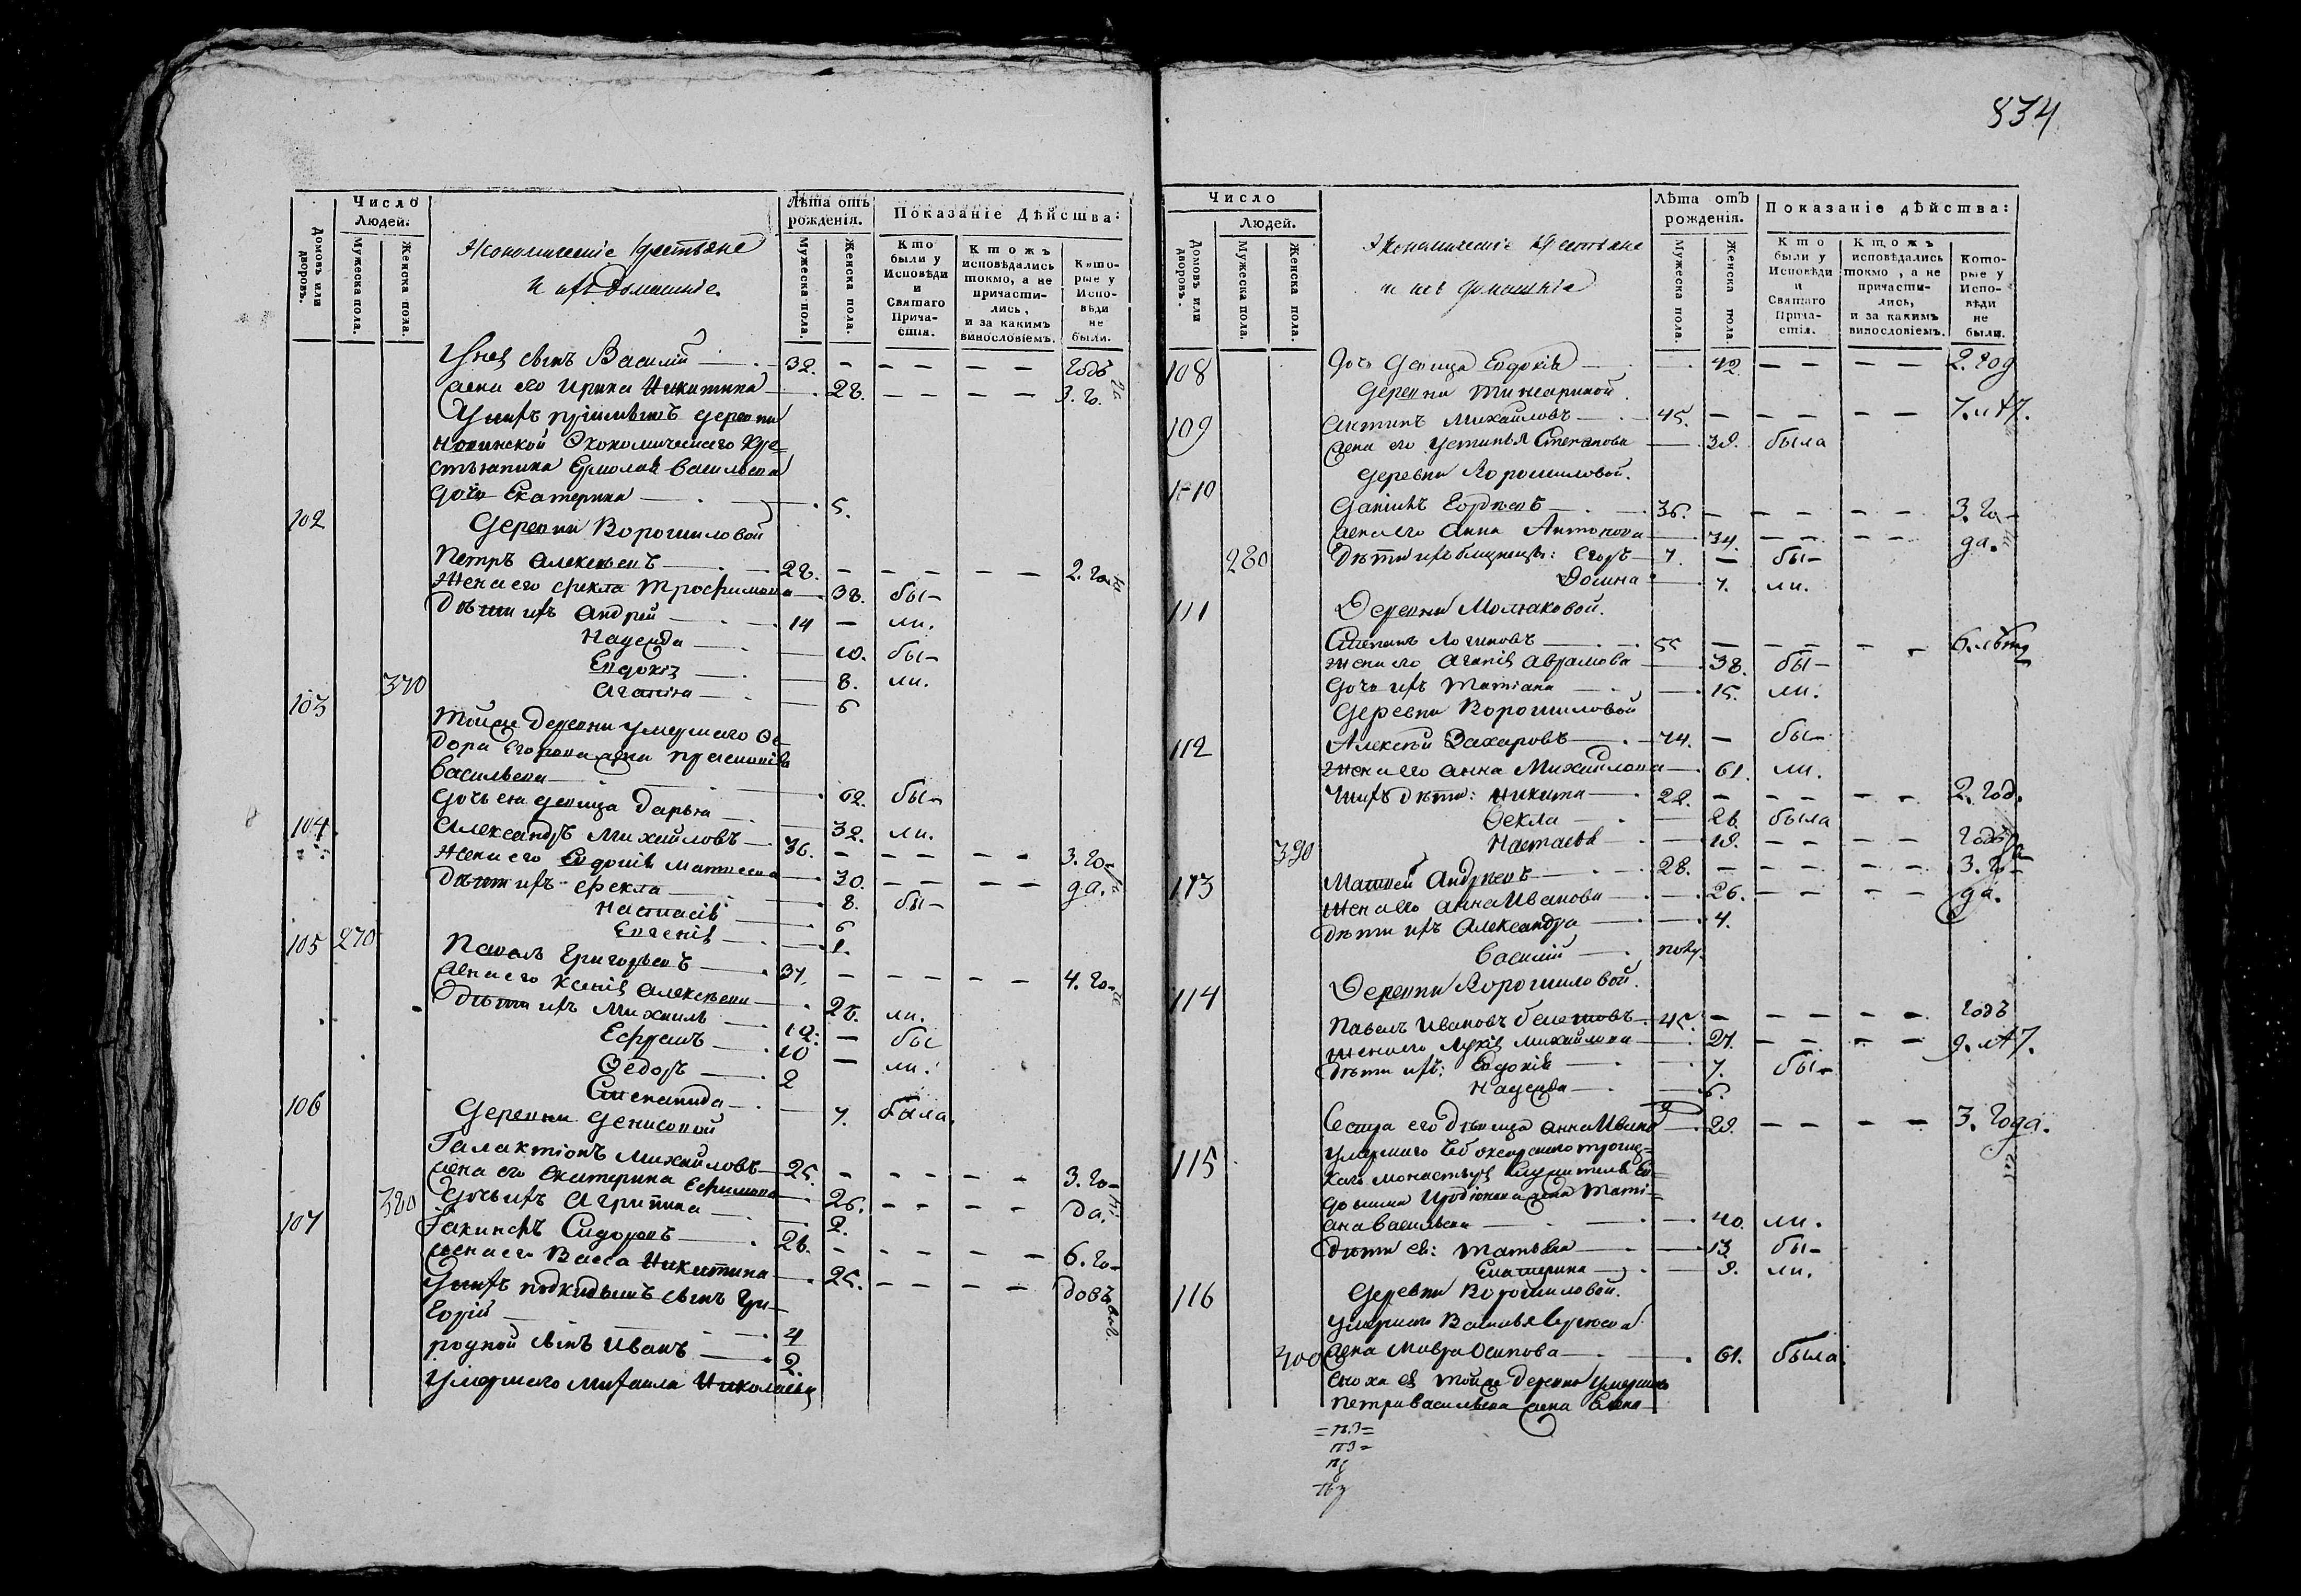 834
Число Людей.
Домовъ или дворовъ.
Мужеска пола.
Женска пола.
Экономическіе крестьяне
и ихъ домашніе.
Лѣта отъ рожденія.
Мужеска пола.
Женска пола.
Показаніе дѣйства:
Кто были у Исповѣди и Святаго Прича-стія.
Ктожъ исповѣдались токмо, а не причасти-лись, и за какимъ винословіемъ.
Кото-рые у Испо-вѣди не были.
У нея сынъ Василій 32. годъ
жена его Ирина Никитина 28. 3. го-да
У нихъ пріимышъ деревни
Экономическаго кре=
стьянина Ермолая Васильева
дочь Екатерина 5.
102 Деревни Ворошиловой
Петръ Алексѣевъ 28. 2. го-
Жена его Ѳекла Трофимова 38. бы-
Дѣти ихъ Андрей 14 ли.
Надежда 10. бы-
Евдокія 8. ли.
370 Агапія 6
103 Тойже деревни умершаго Ѳе-
дора Егорова жена Прасковія
Васильева 62. бы-
дочь ея девица Дарья 32. ли.
104. Александръ Михайловъ 36. 3. го-
Жена его Евдокія Матвеева 30. да.
Дѣти ихъ Ѳекла 8. бы-
Настасія 6
Евгенія 1.
105 270 Павелъ Григорьевъ 37. 4. го-да
жена его Ксенія Алексѣева 28. ли.
дѣти ихъ Михаилъ 12. бы
Ефремъ 10 ли.
Ѳедоръ 2
Степанида 7. была.
106 Деревни Денисовой
Галактіонъ Михайловъ 25. 3. го-
жена его Екатерина Ефимова 26. да.
380 Дочь ихъ Агрипина 2.
107 Іакинѳъ Сидоровъ 26. 6. го-
жена его Васса Никитина 25. довъ
У нихъ подкидышъ сынъ Гри-
горій 4
родной сынъ Иванъ 2.
Умершаго Михаила Николаева
Число Людей.
Домовъ или дворовъ.
Мужеска пола.
Женска пола.
Экономическіе крестьяне
и ихъ домашніе
Лѣта отъ рожденія.
Мужеска пола.
Женска пола.
Показаніе дѣйства:
Кто были у Исповѣди и Святаго Прича-стія.
Ктожъ исповѣдались токмо, а не причасти-лись, и за какимъ винословіемъ.
Кото-рые у Испо-вѣди не были.
108 Дочь девица Евдокія 42. 2. год
Деревни
109 Михайловъ 45. 7. лѣт.
жена его Устинья Степанова 39. была
Деревни Ворошиловой.
110 Даніилъ Ебрѣевъ 36. 3. го-
жена его Анна Антонова 34. да.
280 Дѣти ихъ близнецы: Егоръ 7. бы-
Домна 7. ли.
111 Деревни Молчаковой.
Степанъ Логиновъ 55 6. лѣтъ
Жена его Агапія Аврамова 38. бы-
Дочь ихъ Татіана 15. ли.
Деревни Ворошиловой
112 Алексѣй Захаровъ 74. бы-
Жена его Анна Михайлова 61. ли.
У нихъ дѣти: Никита 22. 2. год.
Ѳекла 26. была
390 Настасья 19. годъ
113 Матвей Андрѣевъ 28. 3. го-
Жена его Анна Иванова 26. да.
Дѣти ихъ Александра 4.
Василій полу.
Деревни Ворошиловой.
114 Павелъ Ивановъ 45. годъ
Жена его Лукія Михайлова 27. 9. лѣт.
Дѣти ихъ: Евдокія 7. бы-
Надежда 6.
Сестра его дѣвица Анна Ивано 29. 3. года.
115 Умершаго Чебоксарскаго Троиц=
каго монастыря служителя Ев=
докима Иродіонова жена Тати=
ана Васильева 40. ли.
Дѣти ея: Татьяна 13. бы-
Екатерина 9. ли.
116 Деревни Ворошиловой.
Умершаго Василья
400 жена Мавра Осипова 61. была.
Сноха ея тойже деревни умершаго
Петра Васильева жена Елена